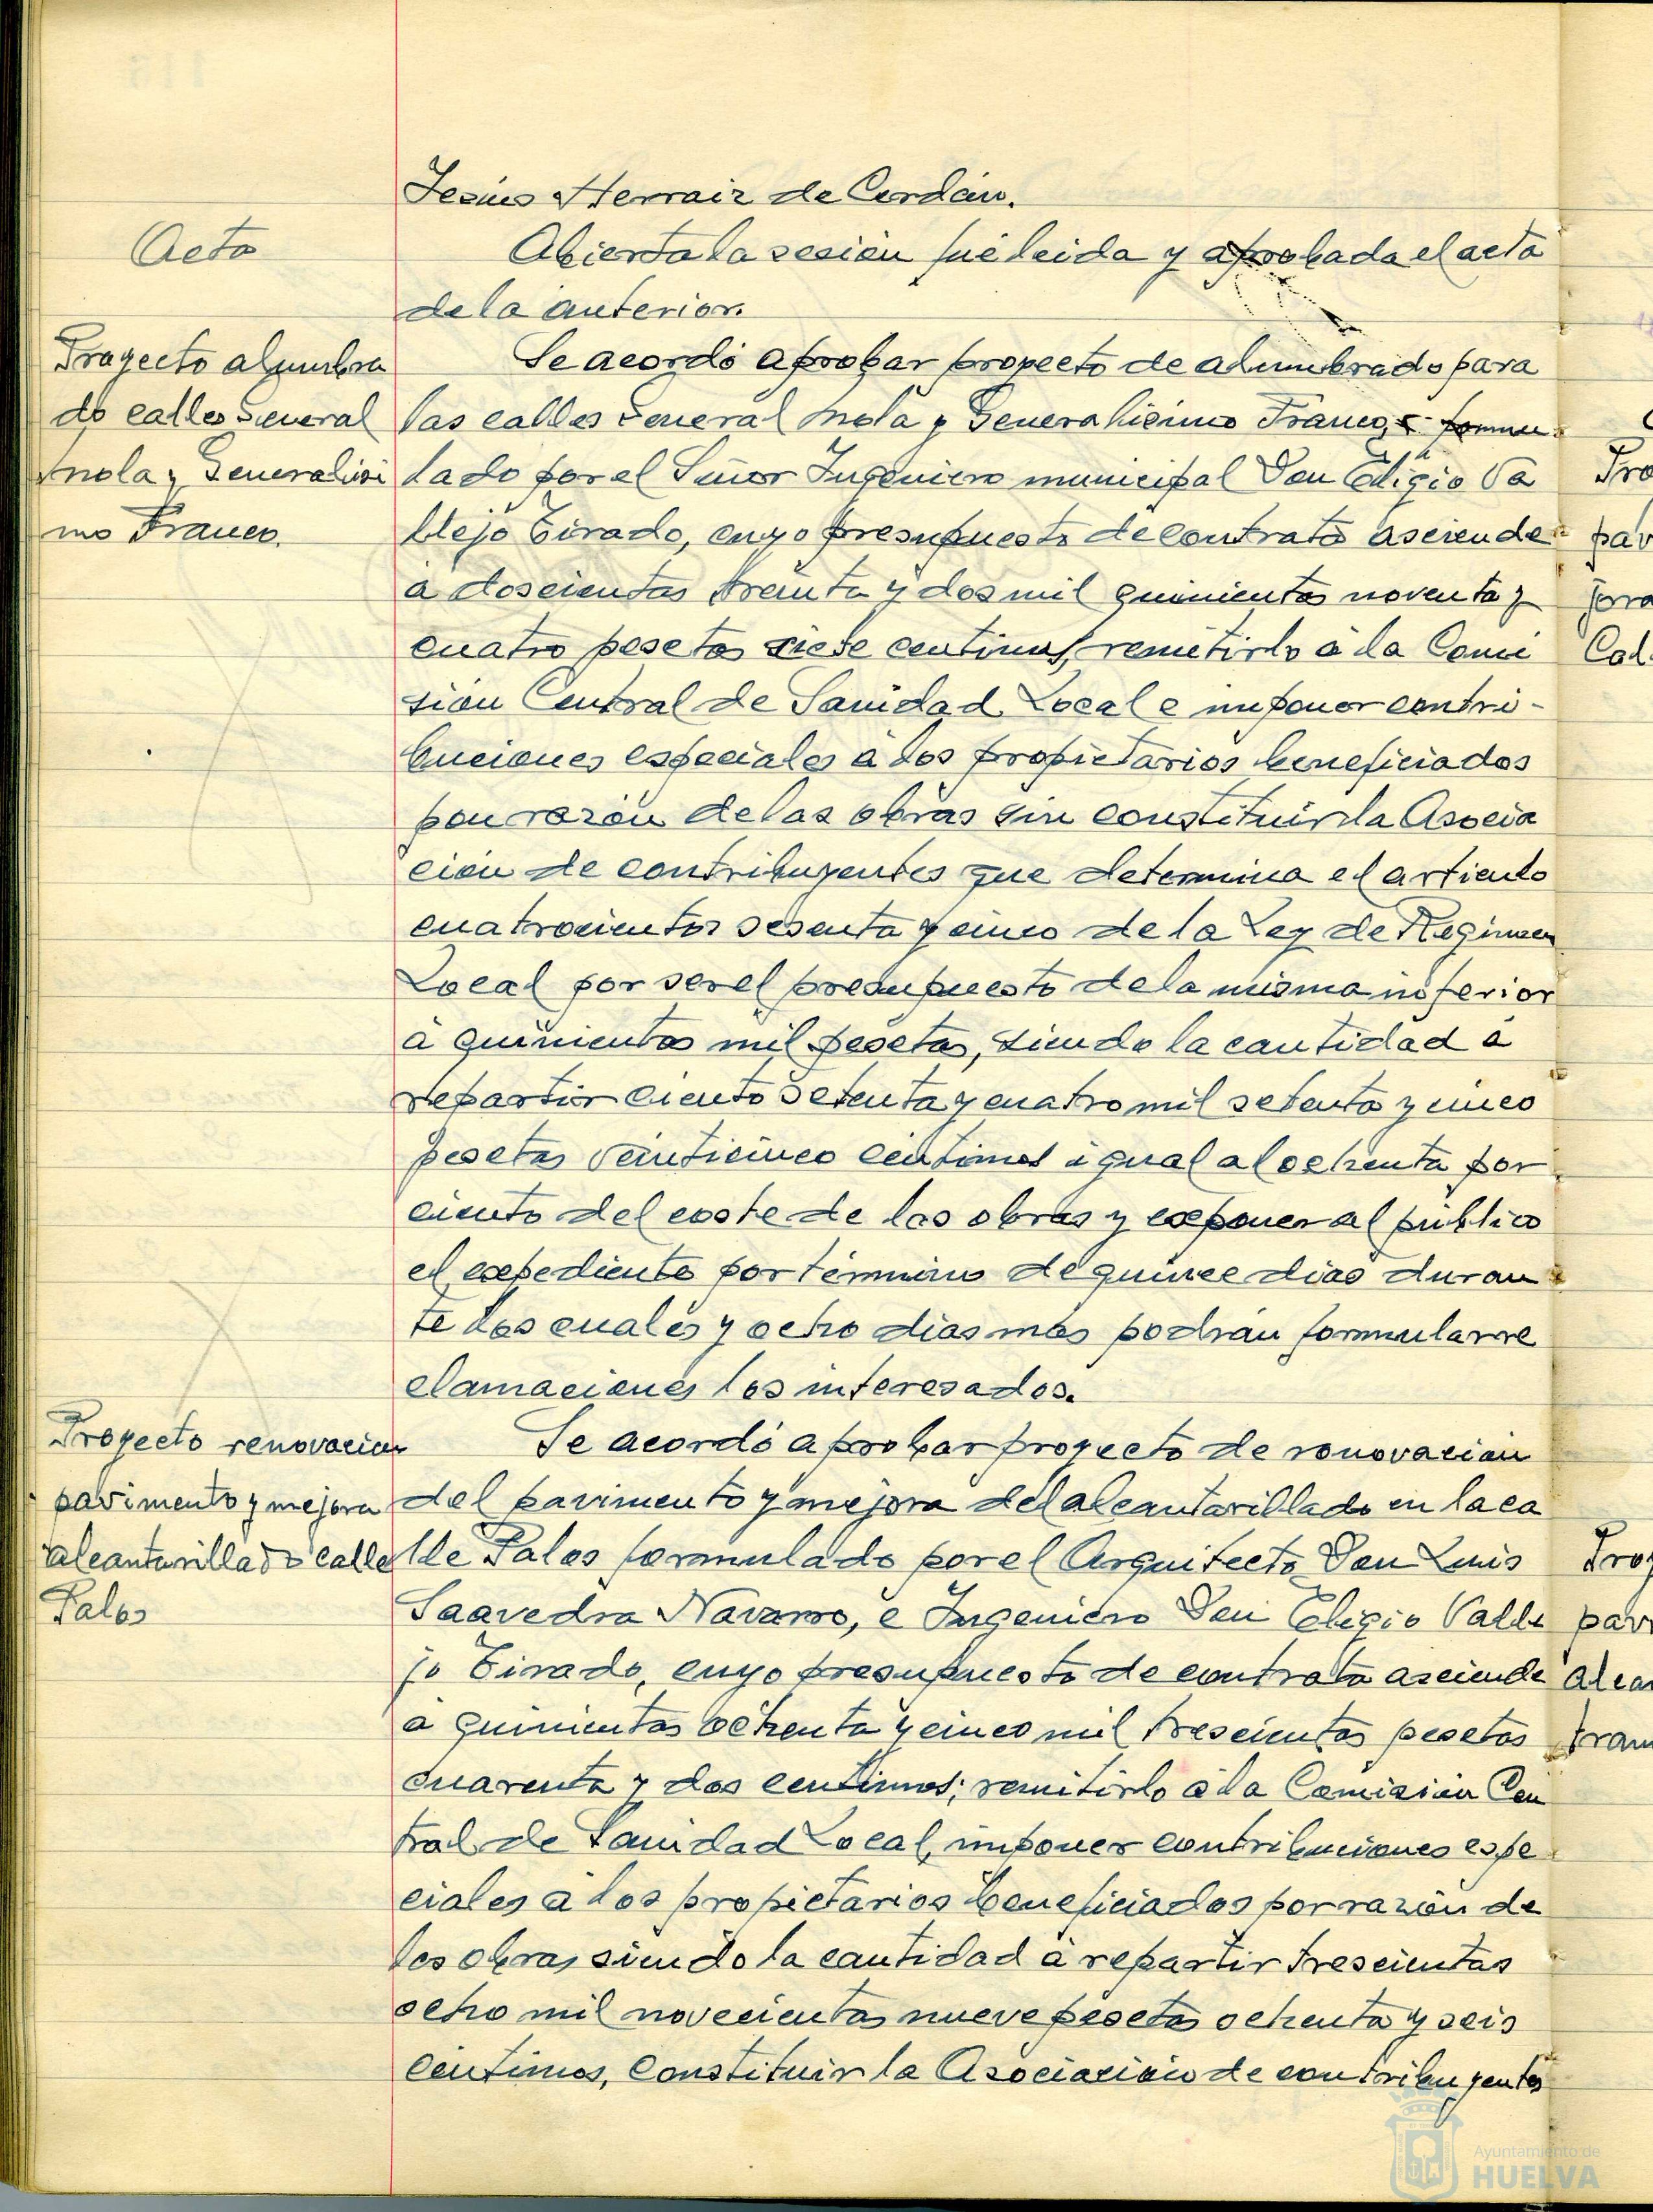 Jesús Herraiz de Cerdán.
Acta
Abierta la sesión fué leida y aprobada el acta
de la anterior.
Proyecto alumbra
do calles General
Mola y Generalisi
mo Franco.
Se acordó aprobar proyecto de alumbrado para
las calles General Mola y Generalisimo Franco, formu
lado por el Señor Ingeniero municipal Don Eligio Va
llejo Tirado, cuyo presupuesto de contrata asciende
a doscientas treinta y dos mil quinientas noventa y
cuatro pesetas siete centimos, remitirlo a la Comi
sión Central de Sanidad Local e imponer contri-
buciones especiales a los propietarios beneficiados
por razón de las obras sin constituir la Asocia
ción de contribuyentes que determina el articulo
cuatrocientos sesenta y cinco de la Ley de Régimen
Local por ser el presupuesto de la misma inferior
a quinientas mil pesetas, siendo la cantidad a
repartir ciento setenta y cuatro mil setenta y cinco
pesetas veinticinco centimos igual al ochenta por
ciento del coste de las obras y exponer al público
el expediente por término de quince dias duran
te los cuales y ocho dias más podrán formular re
clamaciones los interesados.
Proyecto renovacion
pavimento y mejora
alcantarillado calle
Palos
Se acordó aprobar proyecto de renovación
del pavimento y mejora del alcantarillado en la ca
lle Palos formulado por el Arquitecto Don Luis
Saavedra Navarro, e Ingeniero Don Eligio Valle
jo Tirado, cuyo presupuesto de contrata asciende
a quinientas ochenta y cinco mil trescientas pesetas
cuarenta y dos centimos; remitirlo a la Comisión Cen
tral de Sanidad Local, imponer contribuciones espe
ciales a los propietarios beneficiados por razón de
las obras siendo la cantidad a repartir trescientas
ocho mil novecientas nueve pesetas ochenta y seis
centimos, constituir la Asociación de contribuyentes
Pro
pav
jora
Cal
Proy
pav
alcan
tram
Ayuntamiento de
HUELVA